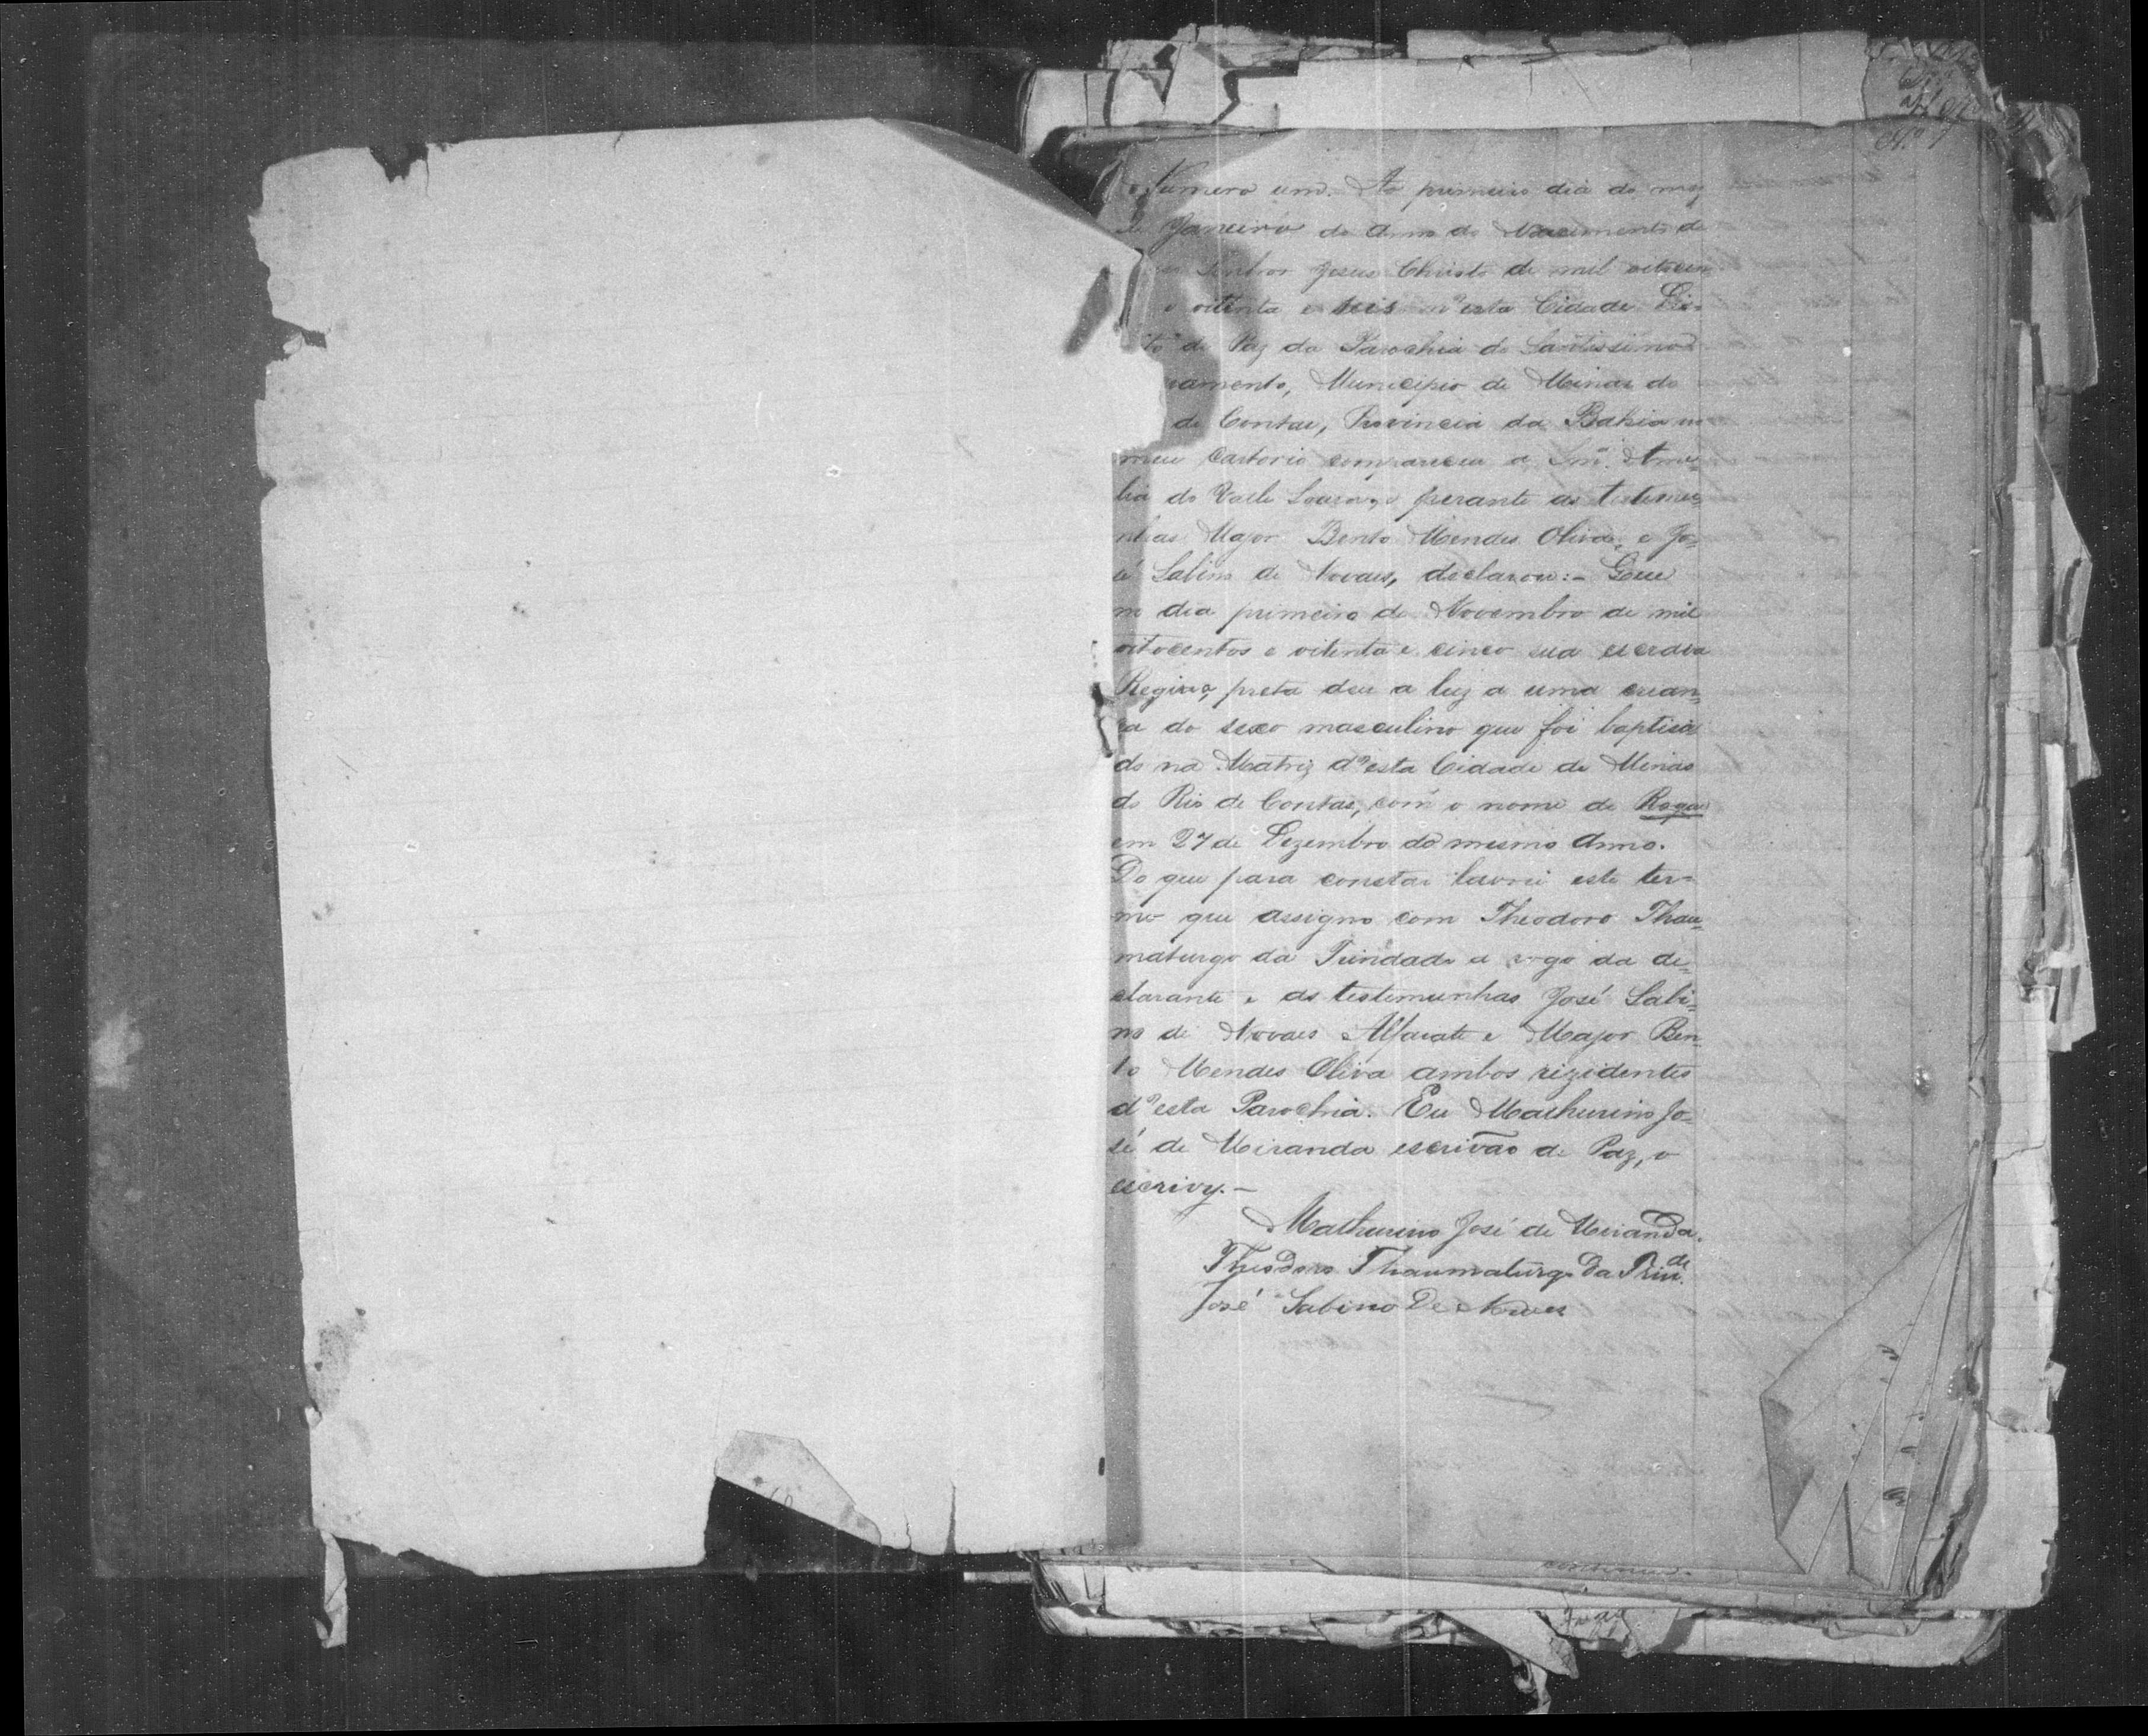 Nº 1
Numero um. Ao primeiro dia do mez
de Janeiro do Anno do Nascimento de
Senhor Jesus Christo de mil oitocen
e oitenta e seis n'esta Cidade Dis-
to de Paz da Parochia do Santissimo
ramento, Municipio de Minas do
de Contas, Provincia da Bahia no
meu Cartorio compareceu a Snrª. Ame-
lia do Valle Souza, e perante as testemu-
nhas Major Bento Mendes Oliva, e Jo-
sé Sabino de Novaes, declarou:- Que
no dia primeiro de Novembro de mil
oitocentos e oitenta e cinco sua escrava
Regina, preta deu a luz a uma crean-
ça do sexo masculino que foi baptisa
do na Matriz d'esta Cidade de Minas
do Rio de Contas, com o nome de Roque
em 27 de Dezembro do mesmo Anno.
Do que para constar lavrei este ter-
mo que assigno com Theodoro Thau-
maturgo da Trindade a rogo da de-
clarante e as testemunhas José Sabi-
no de Novaes Alfaiate e Major Ben-
to Mendes Oliva ambos rezidentes
d'esta Parochia. Eu Mathurino Jo-
sé de Miranda escrivão de Paz, o
escrivy.-
Mathurino José de Miranda.
Theodoro Thaumaturgo da Trin.de
José Sabino de Novaes